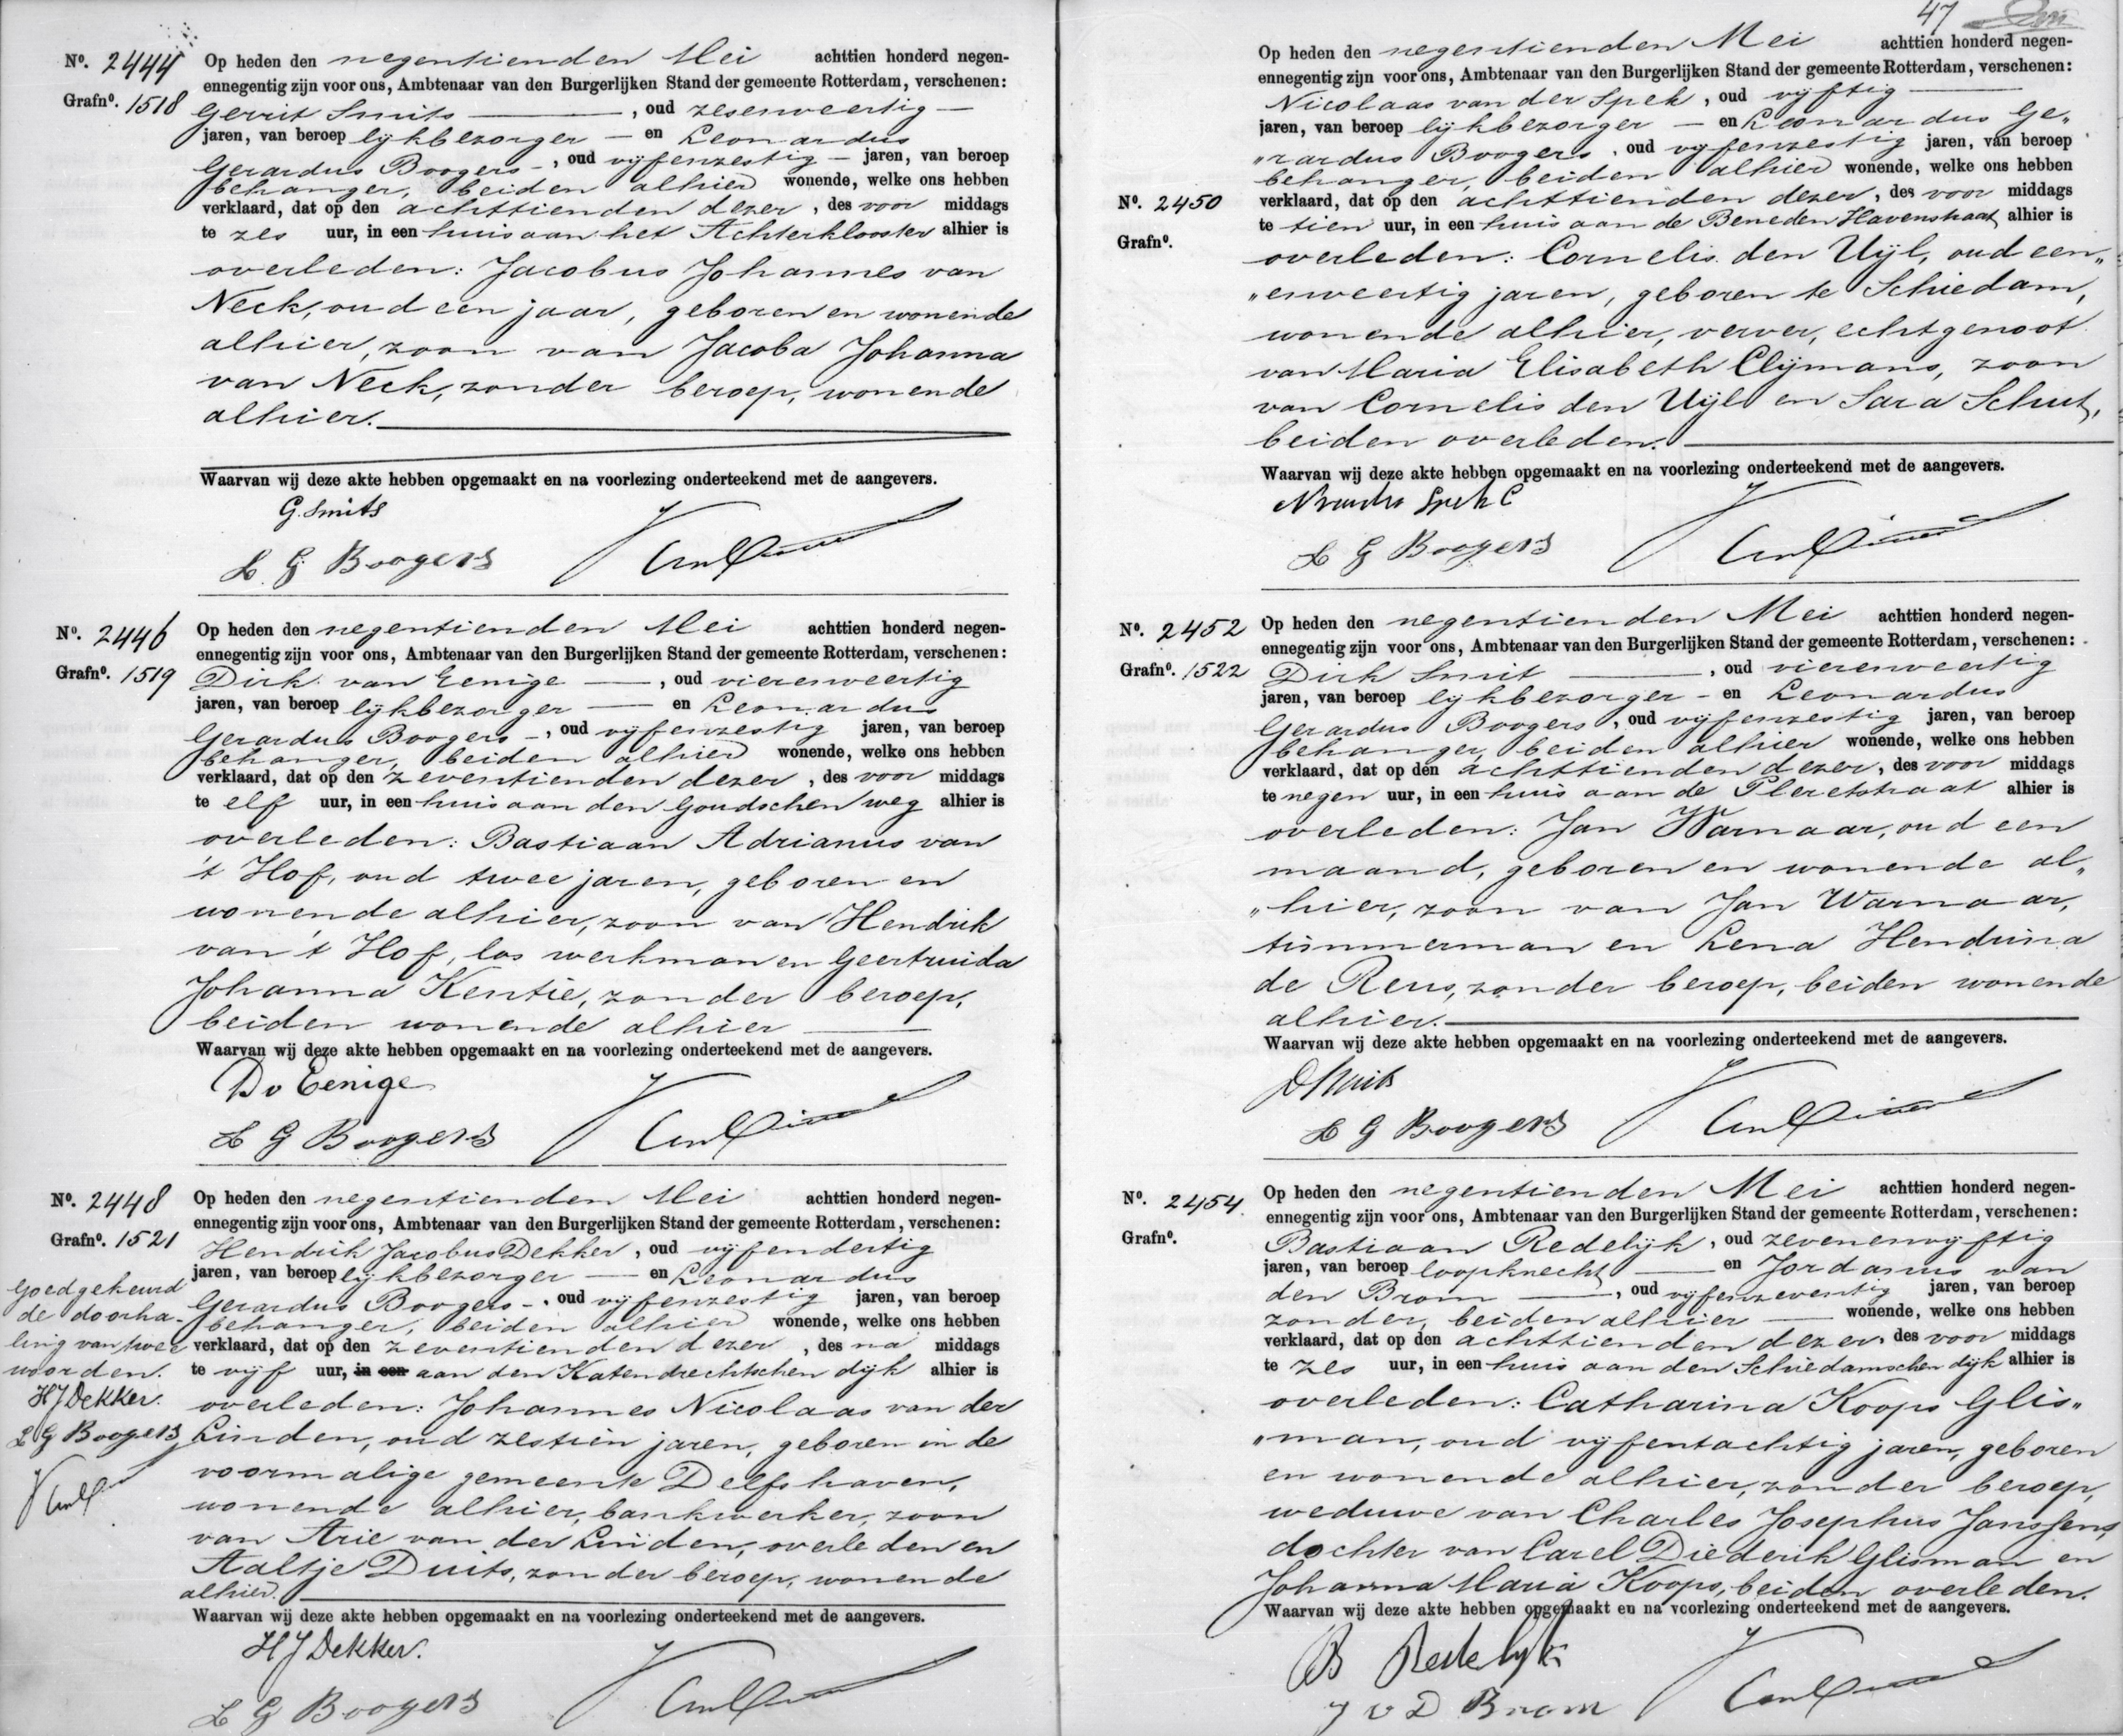 Nº. 2444 Op heden den negentienden Mei achttien honderd negen-
ennegentig zijn voor ons, Ambtenaar van den Burgerlijken Stand der gemeente Rotterdam, verschenen:
Grafnº. 1518 Gerrit Smits, oud zesenveertig
jaren, van beroep lijkbezorger en Leonardus
Gerardus Boogers, oud vijfenzestig jaren, van beroep
behanger, beiden alhier wonende, welke ons hebben
verklaard, dat op den achttienden dezer, des voor middags
te zes uur, in een huis aan het Achterklooster alhier is
overleden: Jacobus Johannes van
Neck, oud een jaar, geboren en wonende
alhier, zoon van Jacoba Johanna
van Neck, zonder beroep, wonende
alhier.
Waarvan wij deze akte hebben opgemaakt en na voorlezing onderteekend met de aangevers.
G. Smits
L. G Boogers
Nº. 2446 Op heden den negentienden Mei achttien honderd negen-
ennegentig zijn voor ons, Ambtenaar van den Burgerlijken Stand der gemeente Rotterdam, verschenen:
Grafnº. 1519 Dirk van Eenige, oud vierenveertig
jaren, van beroep lijkbezorger en Leonardus
Gerardus Boogers, oud vijfenzestig jaren, van beroep
behanger, beiden alhier wonende, welke ons hebben
verklaard, dat op den zeventienden dezer, des voor middags
te elf uur, in een huis aan den Goudschen weg alhier is
overleden: Bastiaan Adrianus van
't Hof, oud twee jaren, geboren en
wonende alhier, zoon van Hendrik
van 't Hof, los werkman en Geertruida
Johanna Kentie, zonder beroep,
beiden wonende alhier
Waarvan wij deze akte hebben opgemaakt en na voorlezing onderteekend met de aangevers.
D v Eenige
L G Boogers
Nº. 2448 Op heden den negentienden Mei achttien honderd negen-
ennegentig zijn voor ons, Ambtenaar van den Burgerlijken Stand der gemeente Rotterdam, verschenen:
Grafnº. 1521 Hendrik Jacobus Dekker, oud vijfendertig
jaren, van beroep lijkbezorger en Leonardus
Gerardus Boogers, oud vijfenzestig jaren, van beroep
behanger, beiden alhier wonende, welke ons hebben
verklaard, dat op den zeventienden dezer, des na middags
te vijf uur, in een aan den Katendrechtschen dijk alhier is
overleden: Johannes Nicolaas van der
Linden, oud zestien jaren, geboren in de
voormalige gemeente Delfshaven,
wonende alhier, bankwerker, zoon
van Arie van der Linden, overleden en
Aaltje Duits, zonder beroep, wonende
alhier.
Waarvan wij deze akte hebben opgemaakt en na voorlezing onderteekend met de aangevers.
H J Dekker.
L G Boogers
Goedgekeurd
de doorha-
ling van twee
woorden.
H J Dekker.
L G Boogers
47
Op heden den negentienden Mei achttien honderd negen-
ennegentig zijn voor ons, Ambtenaar van den Burgerlijken Stand der gemeente Rotterdam, verschenen:
Nicolaas van der Spek, oud vijftig
jaren, van beroep lijkbezorger en Leonardus Ge„
„rardus Boogers, oud vijfenzestig jaren, van beroep
behanger, beiden alhier wonende, welke ons hebben
Nº. 2450 verklaard, dat op den achttienden dezer, des voor middags
te tien uur, in een huis aan de Beneden Havenstraat alhier is
Grafnº.
overleden: Cornelis den Uijl, oud een„
„enveertig jaren, geboren te Schiedam,
wonende alhier, verver, echtgenoot
van Maria Elisabeth Clijmans, zoon
van Cornelis den Uijl en Sara Schut,
beiden overleden.
Waarvan wij deze akte hebben opgemaakt en na voorlezing onderteekend met de aangevers.
L G Boogers
Nº. 2452 Op heden den negentienden Mei achttien honderd negen-
ennegentig zijn voor ons, Ambtenaar van den Burgerlijken Stand der gemeente Rotterdam, verschenen:
Grafnº. 1522 Dirk Smit, oud vierenveertig
jaren, van beroep lijkbezorger en Leonardus
Gerardus Boogers, oud vijfenzestig jaren, van beroep
behanger, beiden alhier wonende, welke ons hebben
verklaard, dat op den achttienden dezer, des voor middags
te negen uur, in een huis aan de Pleretstraat alhier is
overleden: Jan Warnaar, oud een
maand, geboren en wonende al„
„hier, zoon van Jan Warnaar,
timmerman en Lena Hendrina
de Reus, zonder beroep, beiden wonende
alhier.
Waarvan wij deze akte hebben opgemaakt en na voorlezing onderteekend met de aangevers.
D Smit
L G Boogers
Nº. 2454. Op heden den negentienden Mei achttien honderd negen-
ennegentig zijn voor ons, Ambtenaar van den Burgerlijken Stand der gemeente Rotterdam, verschenen:
Grafnº. Bastiaan Redelijk, oud zevenenvijftig
jaren, van beroep loopknecht en Jordanus van
den Brom, oud vijfenzeventig jaren, van beroep
zonder, beiden alhier wonende, welke ons hebben
verklaard, dat op den achttienden dezer, des voor middags
te zes uur, in een huis aan den Schiedamschen dijk alhier is
overleden: Catharina Koops Glis„
„man, oud vijfentachtig jaren, geboren
en wonende alhier, zonder beroep,
weduwe van Charles Josephus Janssens,
dochter van Carel Diederik Glisman en
Johanna Maria Koops, beiden overleden.
Waarvan wij deze akte hebben opgemaakt en na voorlezing onderteekend met de aangevers.
B Redelijk
J V D Brom